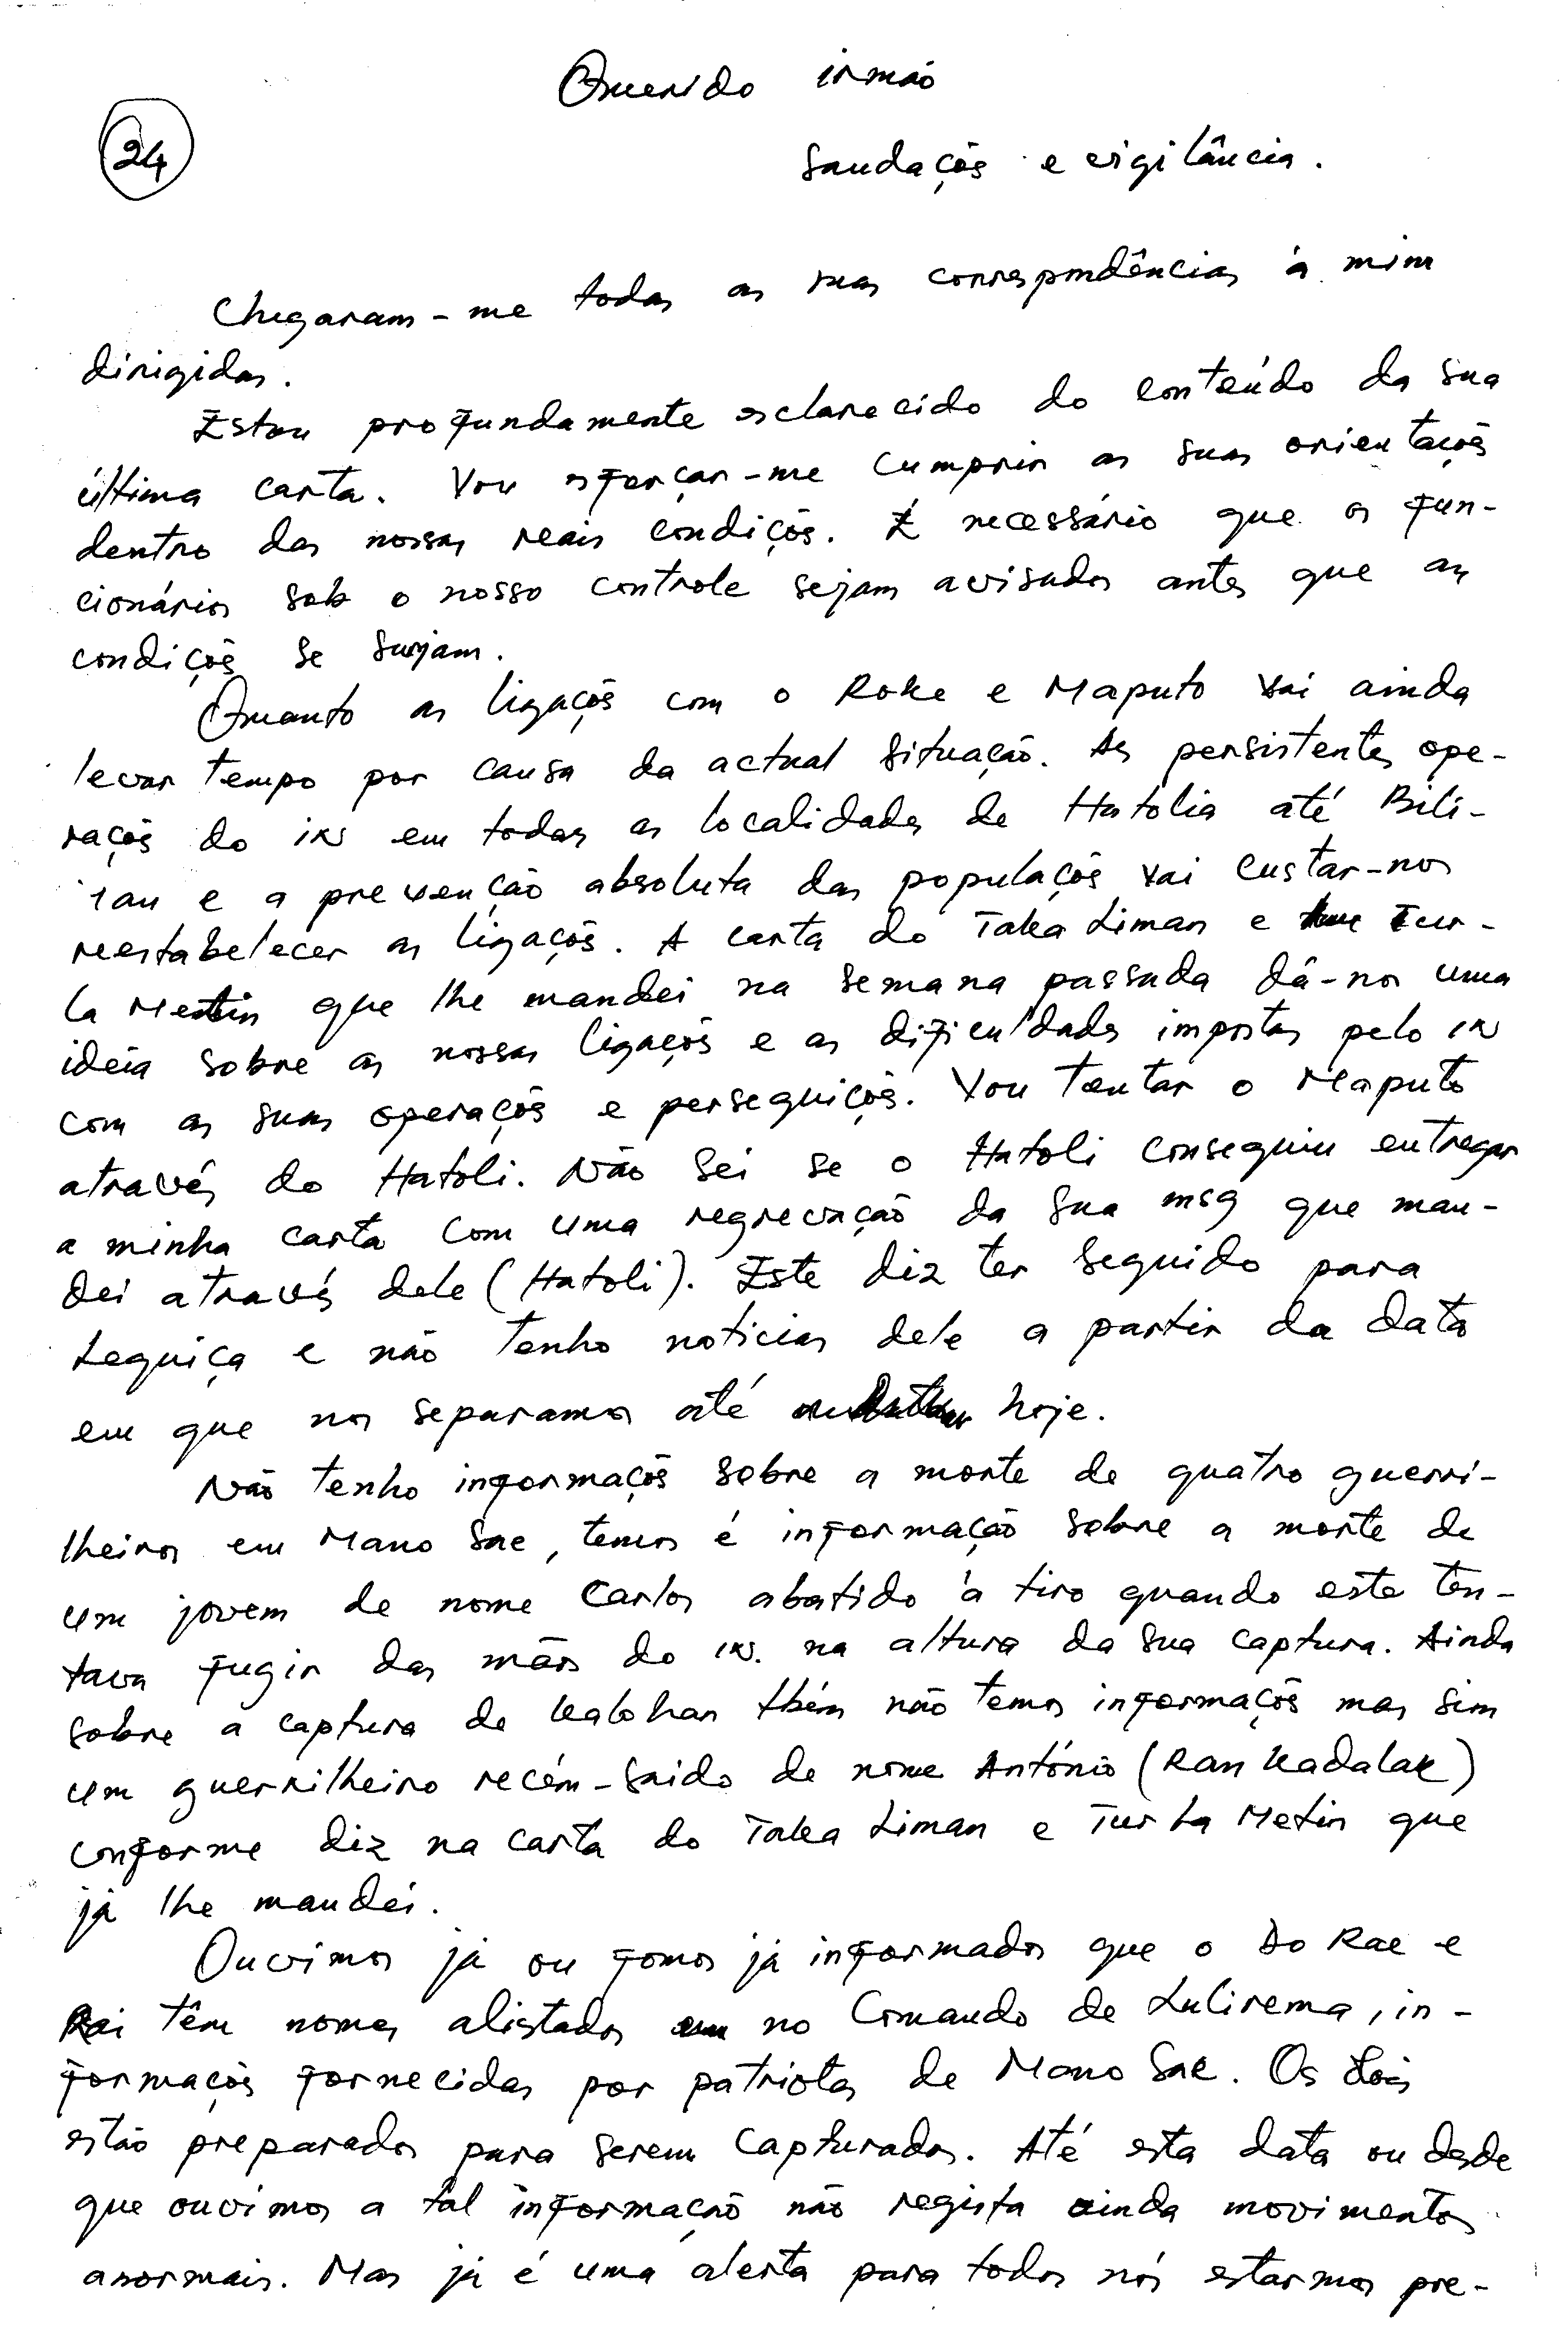 Querido irmão
24
Saudações e vigilância.
Chegaram-me todas as suas correspondências à mim
dirigidas.
Estou profundamente esclarecido do conteúdo da sua
última carta. Vou esforçar-me cumprir as suas orientações
dentro das nossas reais condições. É necessário que os fun-
cionários sob o nosso controle sejam avisados antes que as
condições se surjam.
Quanto as ligações com o Roke e Maputo vai ainda
levar tempo por causa da actual situação. As persistentes ope-
rações do in em todas as localidades de Hatolia até Bili-
lau e a prevenção absoluta das populações vai custar-nos
reestabelecer as ligações. A carta do Taka Liman e Tur-
la Metin que lhe mandei na semana passada dá-nos uma
ideia sobre as nossas ligações e as dificuldades impostas pelo in
com as suas operações e perseguições. Vou tentar o Maputo
através do Hatoli. Não sei se o Hatoli conseguiu entregar
a minha carta com uma regrevação da sua msg que man-
dei através dele (Hatoli). Este diz ter seguido para
Lequiça e não tenho noticias dele a partir da data
em que nos separamos até hoje.
Não tenho informações sobre a morte de quatro guerri-
lheiros em Mano Sae, temos é informação sobre a morte de
um jovem de nome Carlos abatido à tiro quando este ten-
tava fugir das mãos do in. na altura da sua captura. Ainda
sobre a captura de Kalohan tbém não temos informações mas sim
um guerrilheiro recém-saido de nome António (Ran Kadalak)
conforme diz na carta do Taka Liman e Tur La Metin que
já lhe mandei.
Ouvimos já ou fomos já informados que o Lo Rae e
Rai têm nomes alistados no Comando de Lulirema, in-
formações fornecidas por patriotas de Mano Sae. Os dois
estão preparados para serem capturados. Até esta data ou desde
que ouvimos a tal informação não regista ainda movimentos
anormais. Mas já é uma alerta para todos nós estarmos pre-